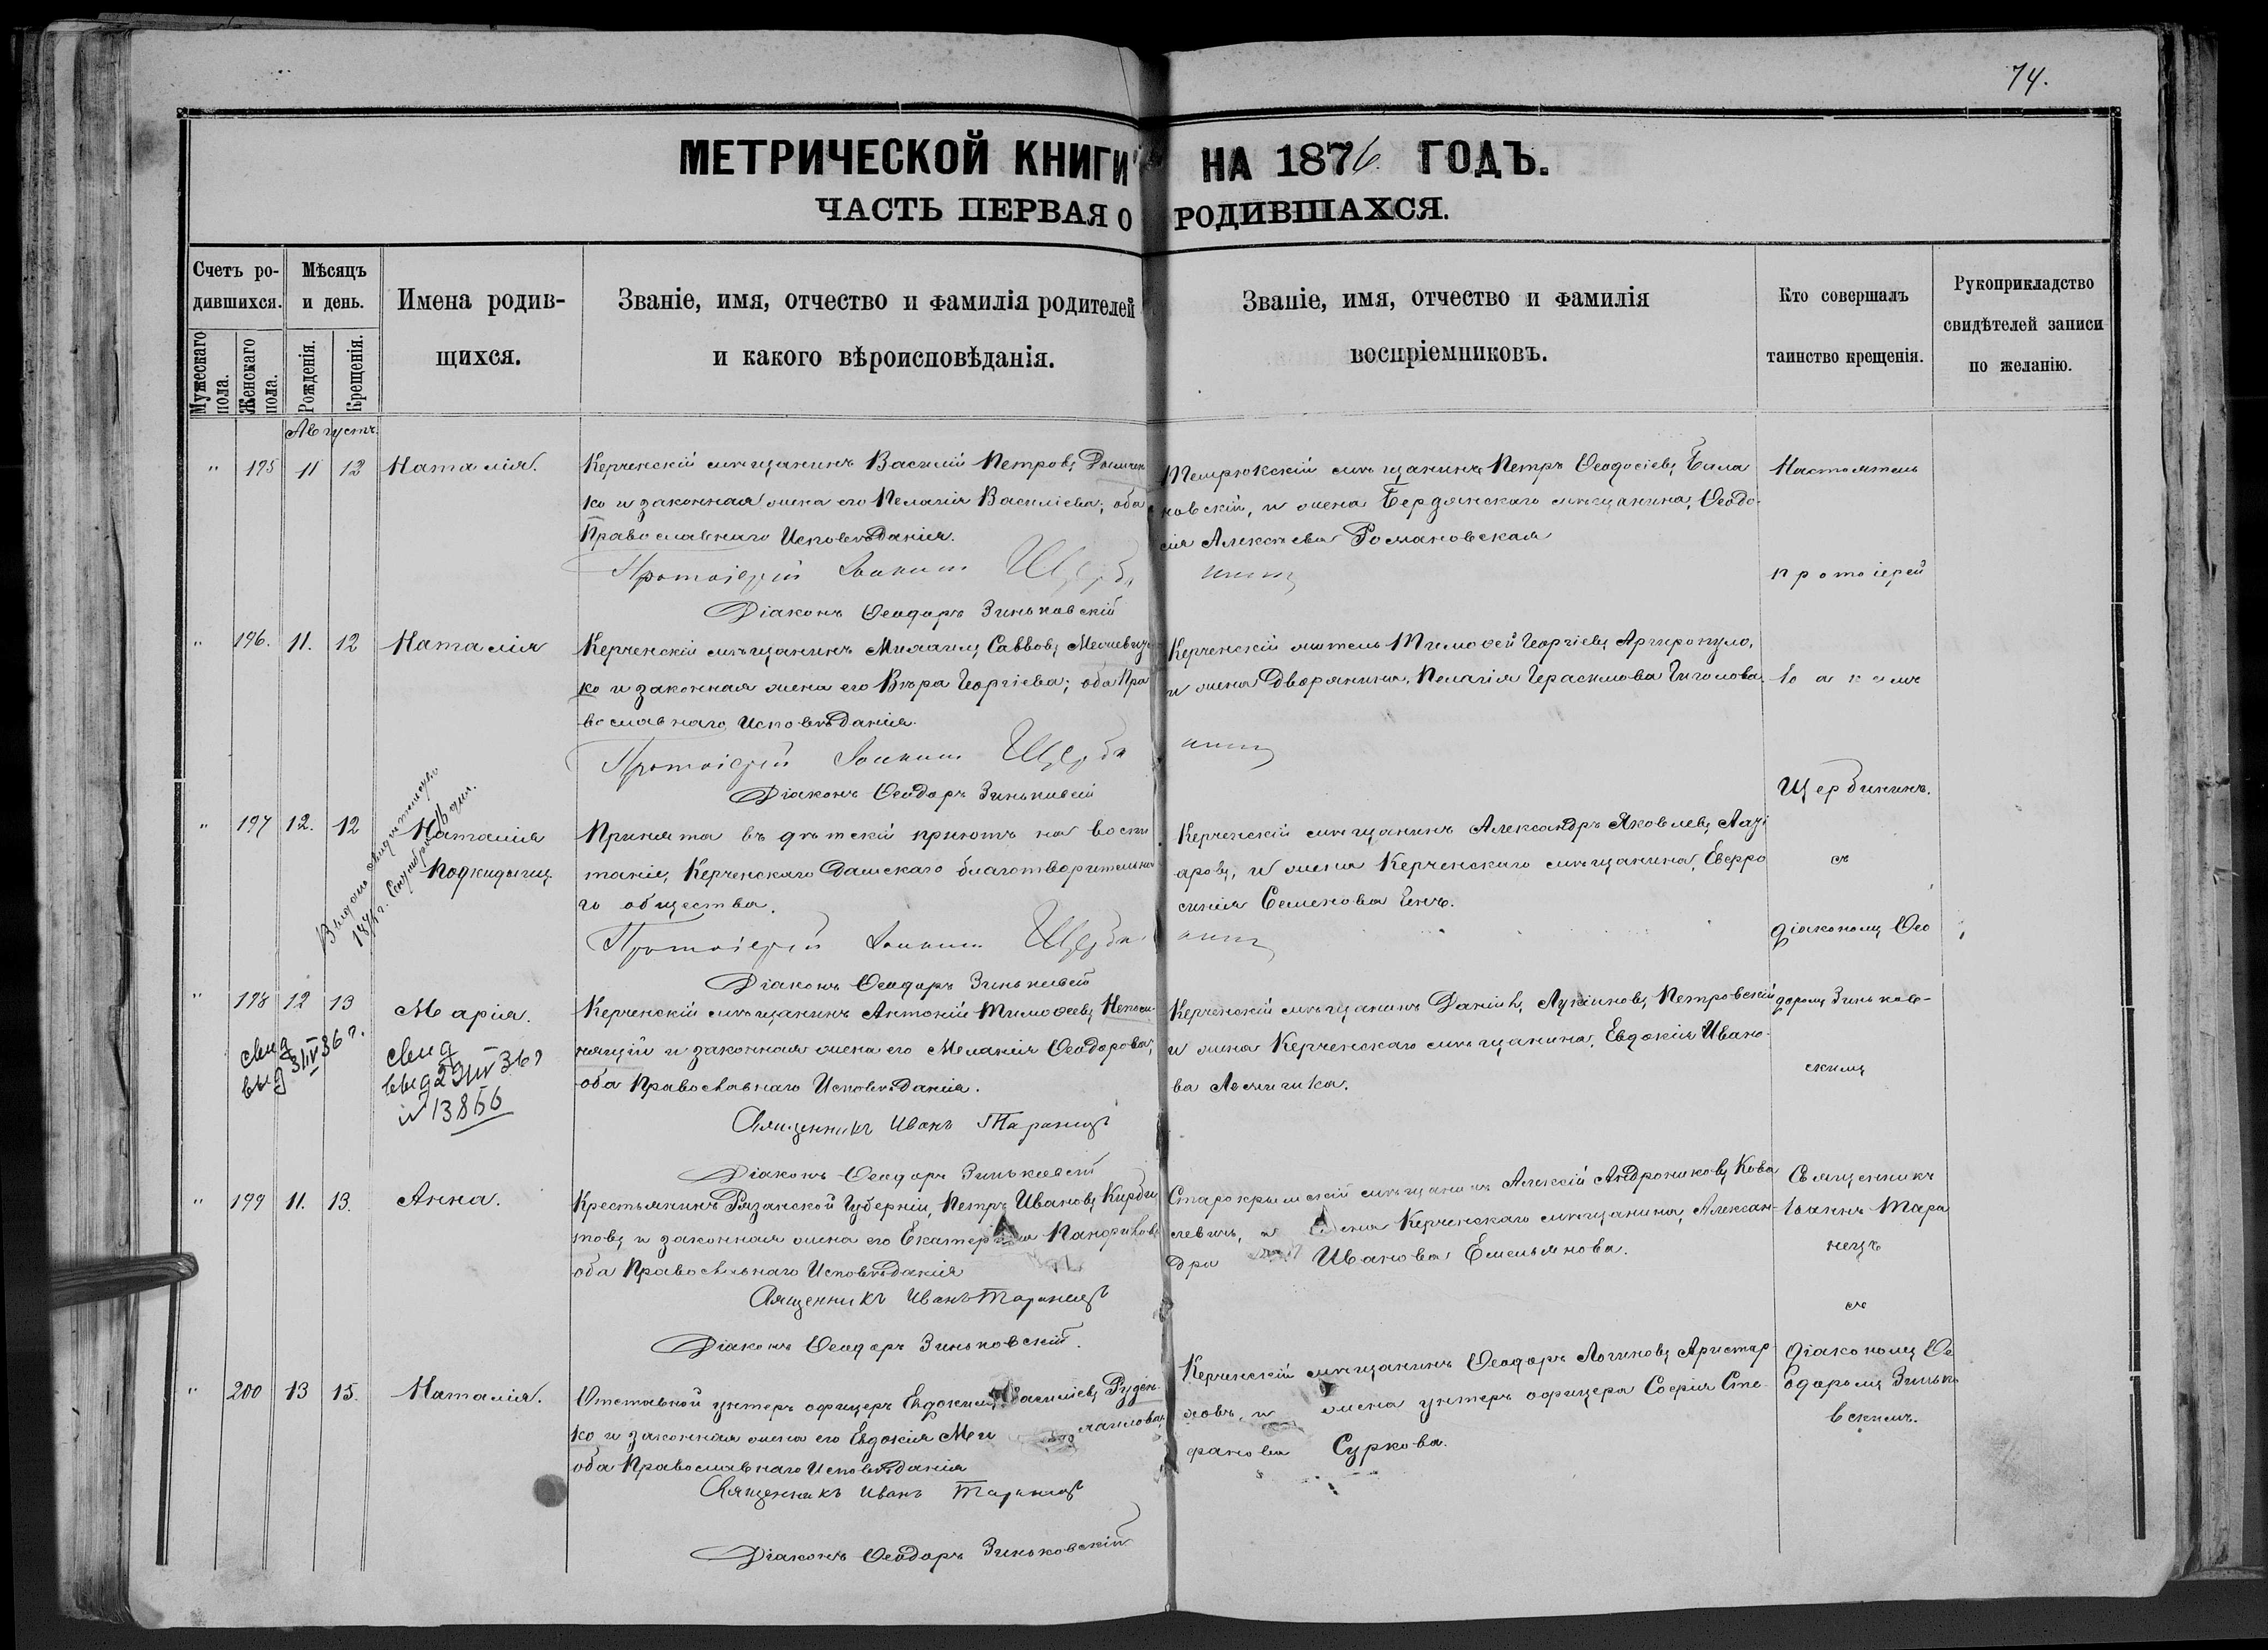 74.
МЕТРИЧЕСКОЙ КНИГИ НА 1876 ГОДЪ.
ЧАСТЬ ПЕРВАЯ О РОДИВШАХСЯ.
Счетъ ро-
дившихся.
Мужескаго пола.
Женскаго пола.
Мѣсяцъ
и день.
Рожденія.
Крещенія.
Имена родив-
щихся.
Званіе, имя, отчество и фамилія родителей
и какого вѣроисповѣданія.
Званіе, имя, отчество и фамилія
воспріемниковъ.
Кто совершалъ
таинство крещенія.
Рукоприкладство
свидѣтелей записи
по желанію.
Августъ.
" 195 11 12 Наталія.
Керченскій мѣщанинъ Василій Петровъ
ко и законная жена его Пелагія Василіева; оба
Православнаго Исповѣданія.
Протоіерей Іоакимъ Щербининъ
Діаконъ Ѳеодоръ Зиньковскій
Темрюкскій мѣщанинъ Петръ Ѳеодосіевъ Била
новскій, и жена Бердянскаго мѣщанина, Ѳеодо-
сія Алексѣева Романовская
Настоятель
протоіерей
" 196. 11. 12 Наталія
Керченскій мѣщанинъ Михаилъ Саввовъ
ко и законная жена его Вѣра Георгіева; оба Пра
вославнаго Исповѣданія.
Протоіерей Іоакимъ Щербининъ
Діаконъ Ѳеодоръ Зиньковскій
Керченскій житель Тимоѳей Георгіевъ Аргиропуло,
и жена Дворянина, Пелагія Герасимова Гиголова.
Іоакимъ
Щербининъ.
" 197 12. 12 Наталія
Подкидышъ
Выдано свидѣтельство
187 г. Сентября 16 дня.
Принята въ дѣтскій пріютъ на воспи
таніе, Керченскаго Дамскаго благотворительна
го общества.
Протоіерей Іоакимъ Щербининъ
Діаконъ Ѳеодоръ Зиньковскій
Керченскій мѣщанинъ Александръ Яковлевъ Лазі
аровъ, и жена Керченскаго мѣщанина, Евфро
синія Семенова
съ
діакономъ Ѳео
" 198 12 13 Марія.
свид
выд 3/IV 36 г.
свид
выд 2 36 г
№ 13866
Керченскій мѣщанинъ Антоній Тимоѳеевъ Непом-
нящій и законная жена его Меланія Ѳеодорова,
оба Православнаго Исповѣданія.
Священникъ Иванъ Таранецъ
Діаконъ Ѳеодоръ Зиньковскій
Керченскій мѣщанинъ Даніилъ Лукіановъ Петровскій
и жена Керченскаго мѣщанина, Евдокія Ивано-
ва
доромъ Зиньков-
скимъ
" 199 11. 13. Анна.
Крестьянинъ Рязанской Губерніи, Петръ Ивановъ Курби
товъ и законная жена его Екатерина Панфилова
оба Православнаго Исповѣданія
Священникъ Иванъ Таранецъ
Діаконъ Ѳеодоръ Зиньковскій.
Старокрымскій мѣщанинъ Алексій Андрониковъ Кова
левичъ, и жена Керченскаго мѣщанина, Алексан-
дра Иванова Емельянова.
Священникъ
Іоаннъ Тара
нецъ
съ
" 200 13 15. Наталія.
Отставной унтеръ офицеръ Евдокимъ Василіевъ Руден-
ко и законная жена его Евдокія
оба Православнаго Исповѣданія
Священникъ Иванъ Таранецъ
Діаконъ Ѳеодоръ Зиньковскій
Керченскій мѣщанинъ Ѳеодоръ Логиновъ Аристар-
ховъ, и жена унтеръ офицера Софія Сте-
фанова Суркова.
діакономъ Ѳе
одоромъ Зинько
вскимъ.